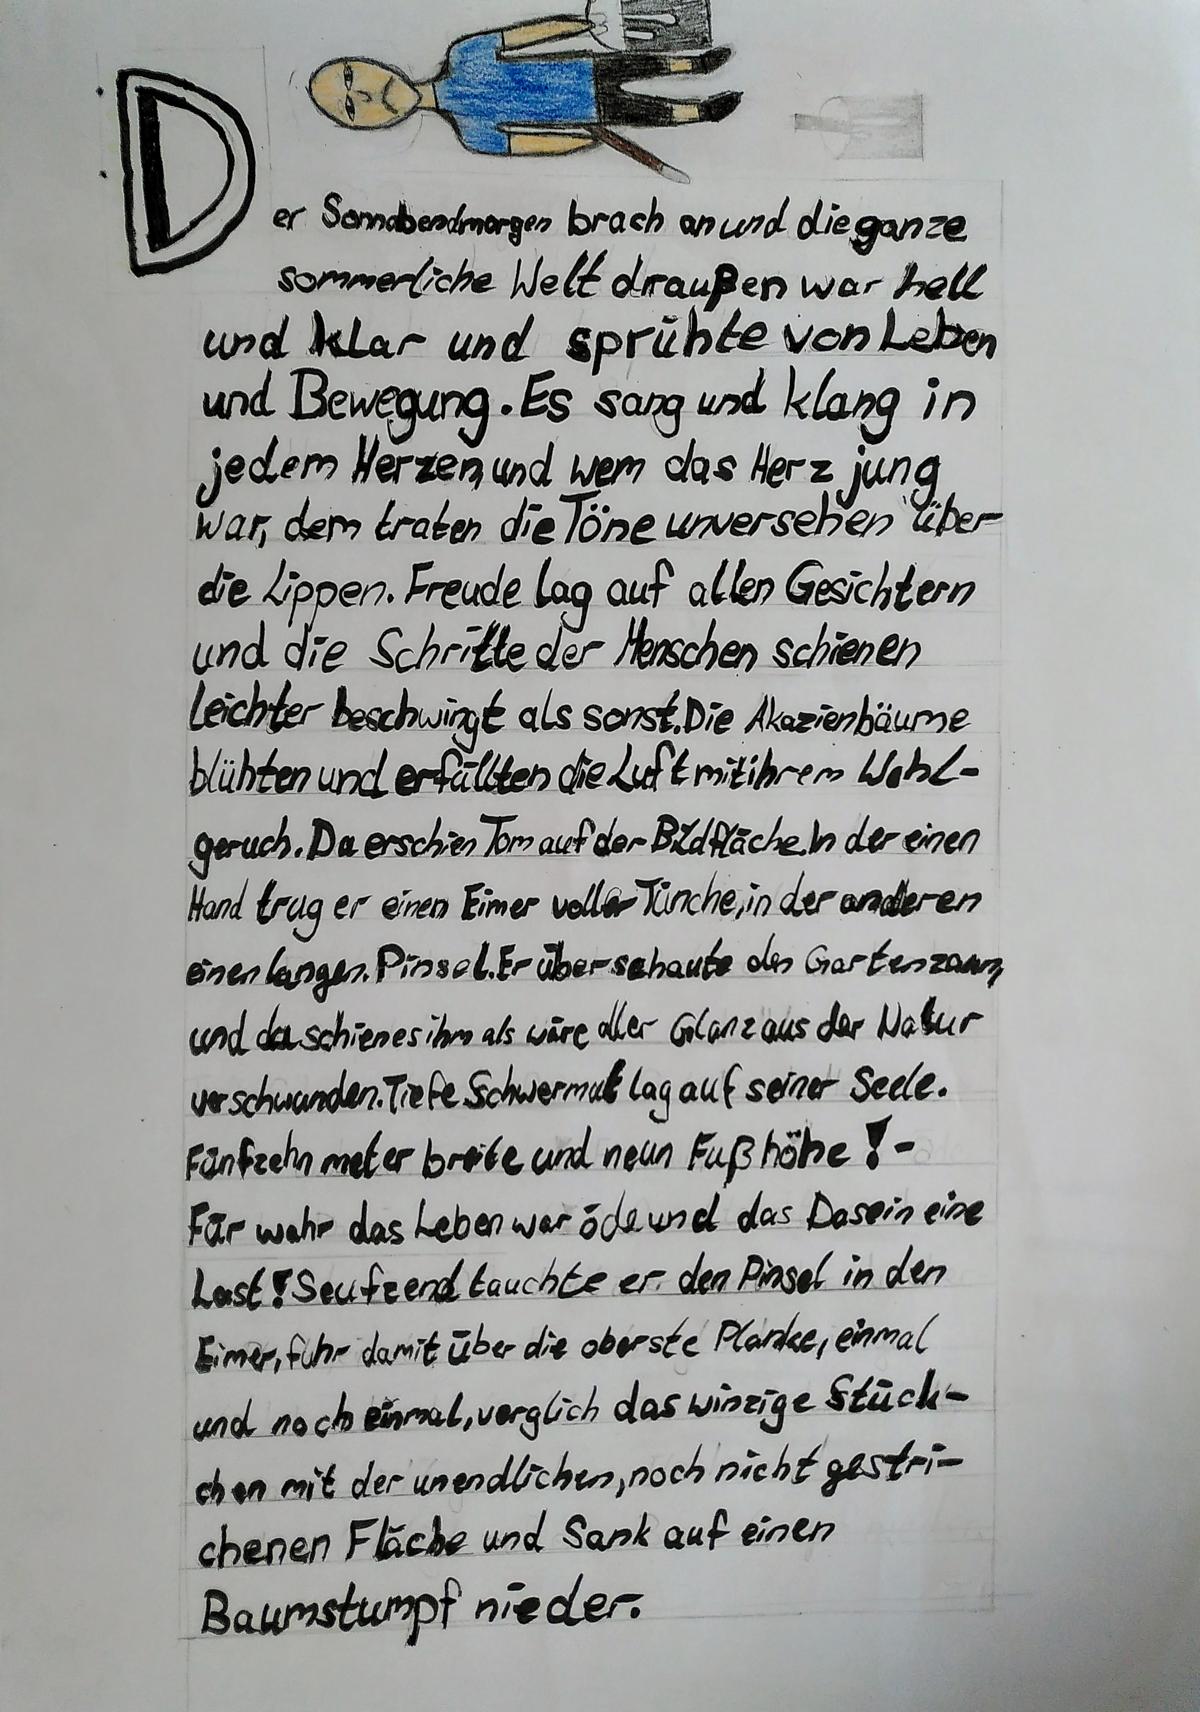 Der Sonnabendmorgen brach an und die ganze
sommerliche Welt draußen war hell
und klar und sprühte von Leben
und Bewegung. Es sang und klang in
jedem Herzen, und wem das Herz jung
war, dem traten die Töne unversehen über
die Lippen. Freude lag auf allen Gesichtern
und die Schritte der Menschen schienen
leichter beschwingt als sonst. Die Akazienbäume
blühten und erfüllten die Luft mit ihrem Wohl-
geruch. Da erschien Tom auf der Bildfläche. In der einen
Hand trug er einen Eimer voller Tünche, in der anderen
einen langen. Pinsel. Er überschaute den Gartenzaun,
und da schien es ihm als wäre aller Glanz aus der Natur
verschwunden. Tiefe Schwermut lag auf seiner Seele.
Fünfzehn meter breite und neun Fuß höhe! -
Für wahr das Leben war öde und das Dasein eine
Last! Seufzend tauchte er den Pinsel in den
Eimer, fuhr damit über die oberste Planke, einmal
und noch einmal, verglich das winzige Stück-
chen mit der unendlichen, noch nicht gestri-
chenen Fläche und Sank auf einen
Baumstumpf nieder.